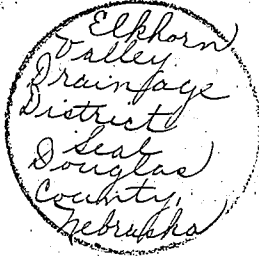 Elkhorn
Valley
Drainage
District
Seal
Douglas
County,
Nebraska